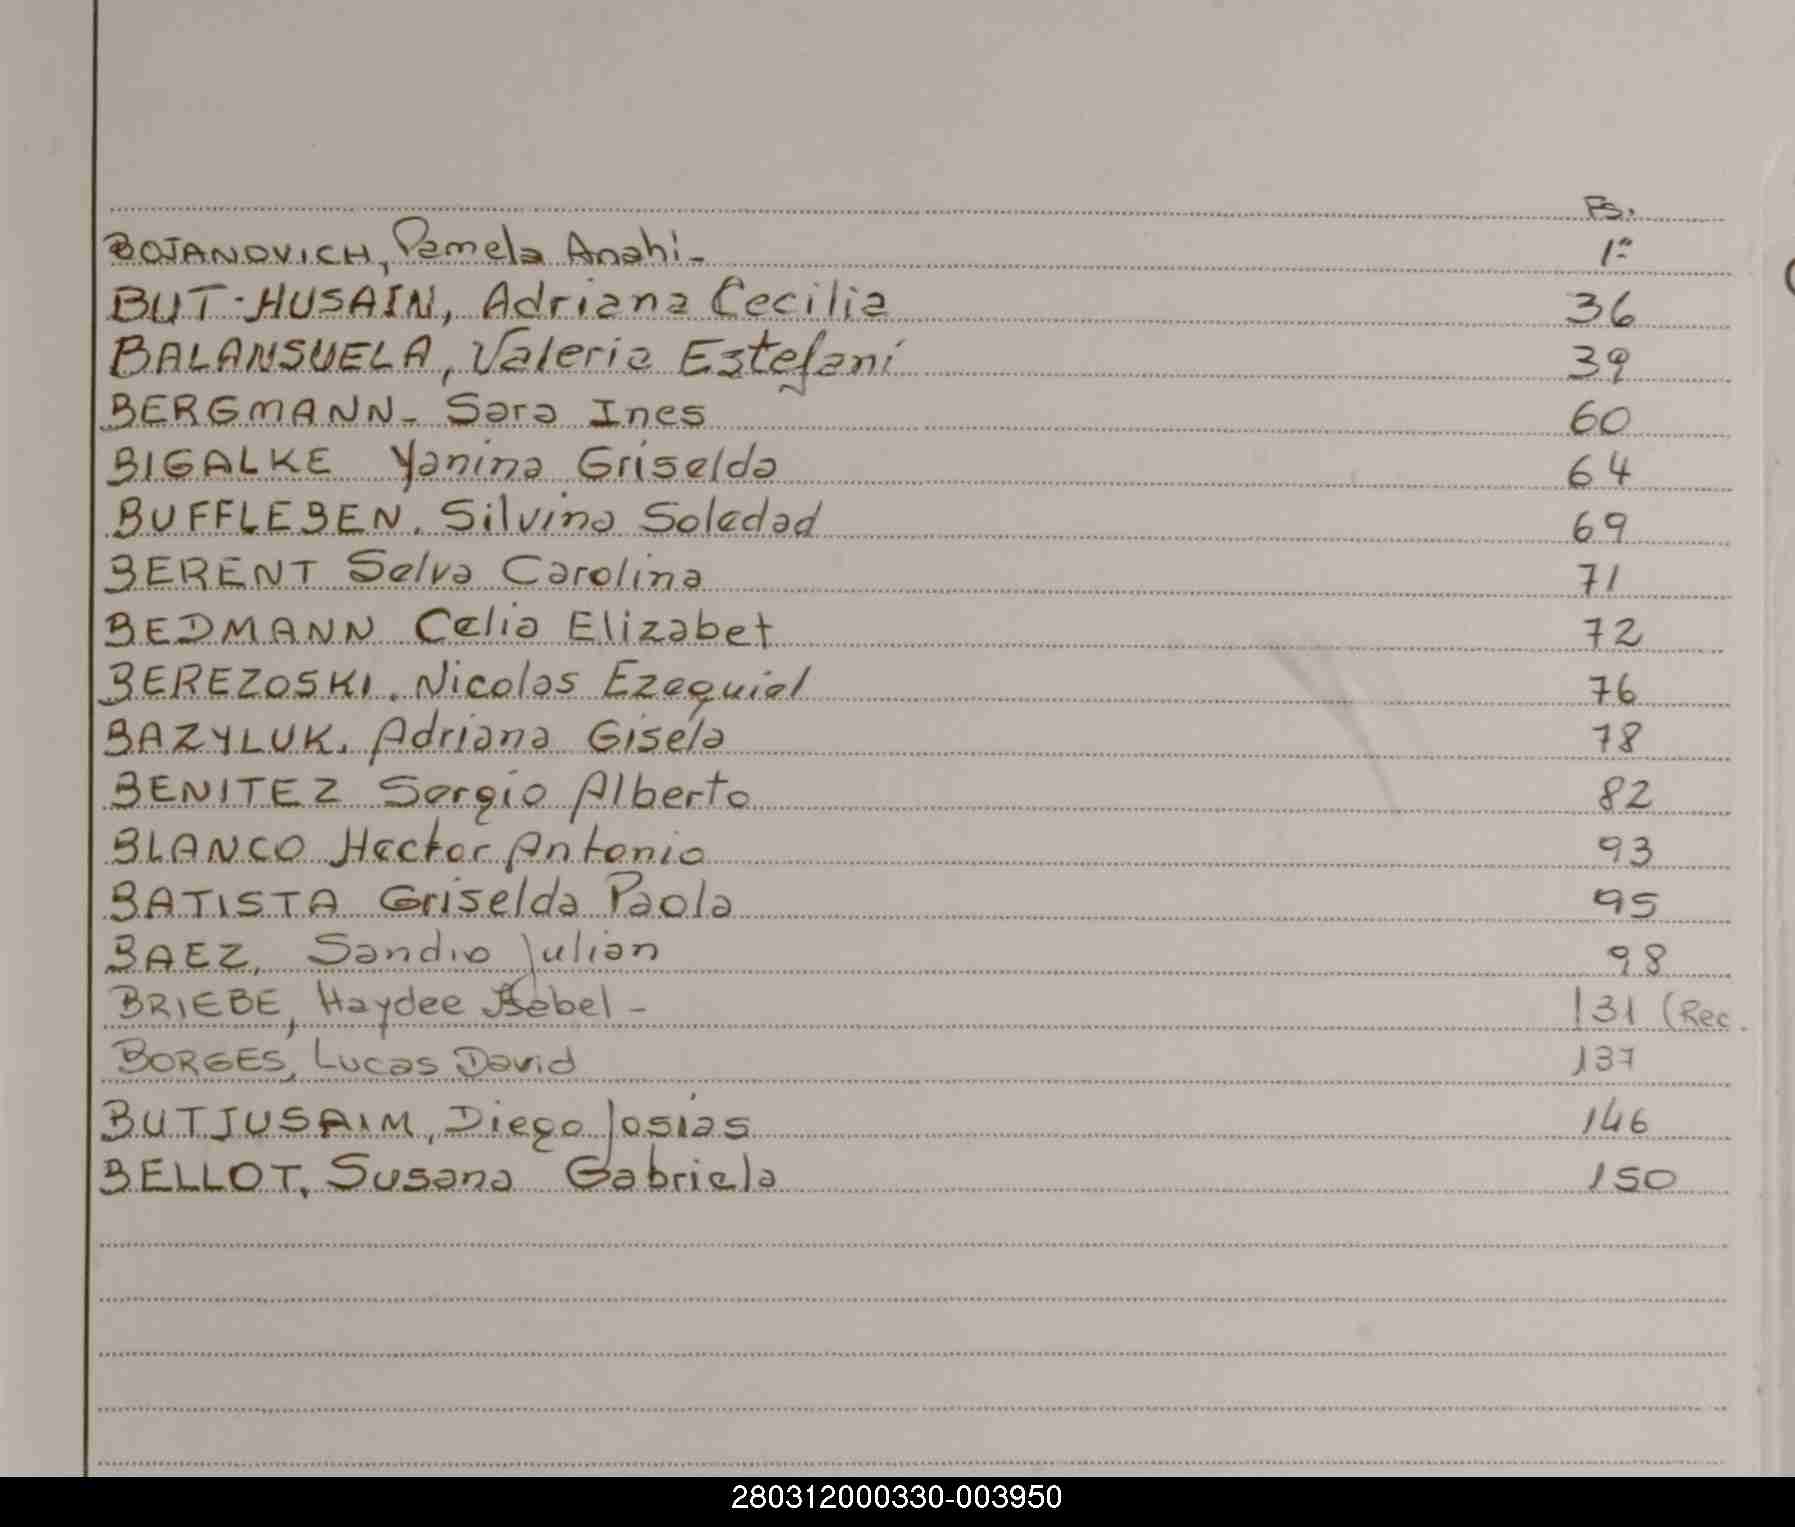 Fs.
BOJANOVICH, Pamela Anahi- 1º
BUT-HUSAIN, Adriana Cecilia 36
BALANSUELA, Valeria Estefani 39
BERGMANN- Sara Ines 60
BIGALKE Yanina Griselda 64
BUFFLEBEN. Silvina Soledad 69
BERENT Selva Carolina 71
BEDMANN Celia Elizabet 72
BEREZOSKI. Nicolas Ezequiel 76
BAZYLUK. Adriana Gisela 78
BENITEZ Sergio Alberto 82
BLANCO Hector Antonio 93
BATISTA Griselda Paola 95
BAEZ, Sandro Julian 98
BRIEBE, Haydee Isebel - 131 (Rec.
BORGES, Lucas David 137
BUTJUSAIM, Diego Josías 146
BELLOT, Susana Gabriela 150
280312000330-003950